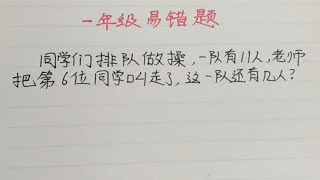 一年级易错题
同学们排队做操,一队有11人,老师
把第6位同学叫走了,这一队还有几人?